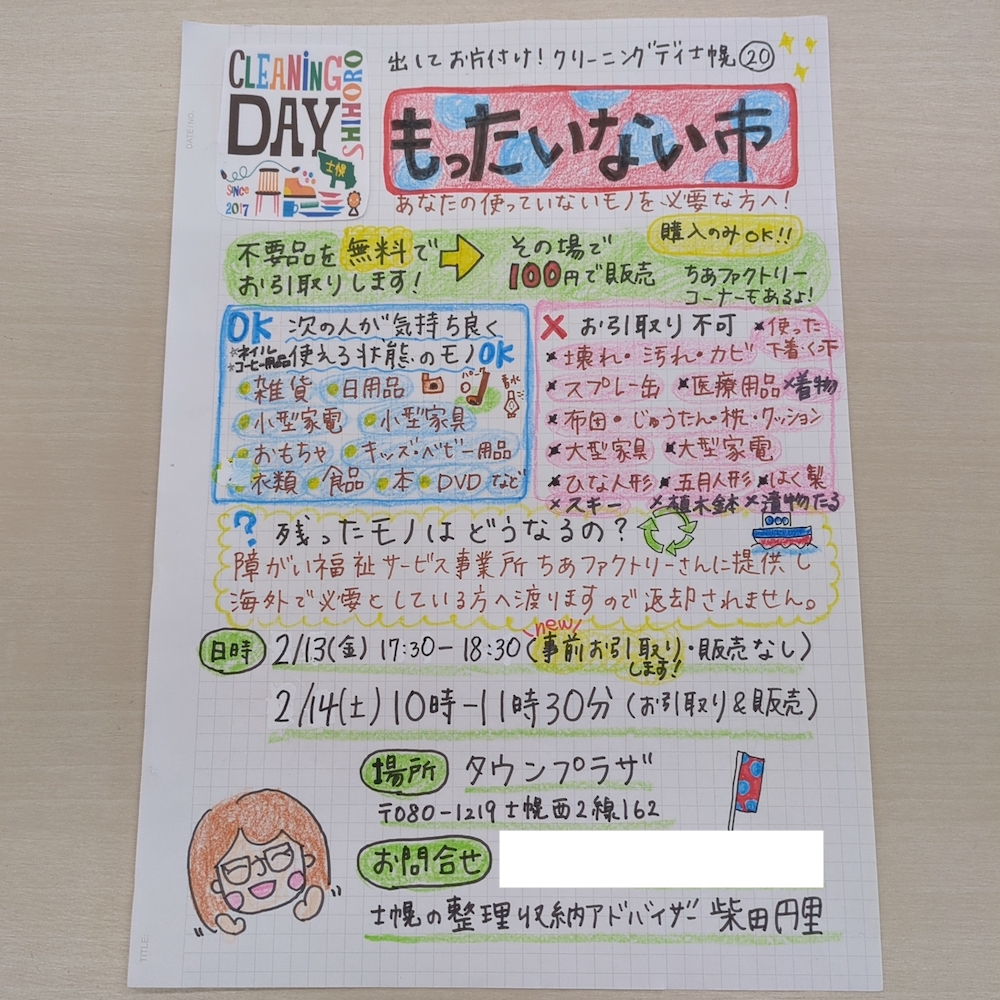 DATE/NO.
CLEANING
DAY
SHIHORO
士幌
SINCE
2017
出してお片付け！クリーニングデイ士幌⑳
もったいない市
あなたの使っていないモノを必要な方へ！
不要品を無料で
お引取りします！
その場で
100円で販売
購入のみOK!!
ちあファクトリー
コーナーもあるよ！
OK 次の人が気持ち良く
*ネイル
*コーヒー用品
使える状態のモノOK
雑貨 日用品
パークゴルフ
小型家電 小型家具
おもちゃ キッズ・ベビー用品
衣類 食品 本 DVD など
× お引取り不可 ×使った
下着・くつ下
×壊れ・汚れ・カビ
×スプレー缶 ×医療用品 ×着物
×布団・じゅうたん・枕・クッション
×大型家具 ×大型家電
×ひな人形 ×五月人形 ×はく製
×スキー ×植木鉢 ×漬物たる
? 残ったモノはどうなるの？
障がい福祉サービス事業所ちあファクトリーさんに提供し
海外で必要としている方へ渡りますので返却されません。
new
日時 2/13(金) 17:30-18:30(事前お引取り・販売なし)
します！
2/14(土) 10時-11時30分 (お引取り&販売)
場所 タウンプラザ
〒080-1219 士幌西2線162
お問合せ
士幌の整理収納アドバイザー 柴田円里
TITLE: